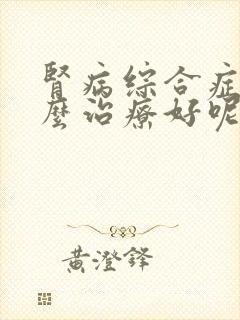 腎病綜合症
麼治療好呢
黃澄鋒